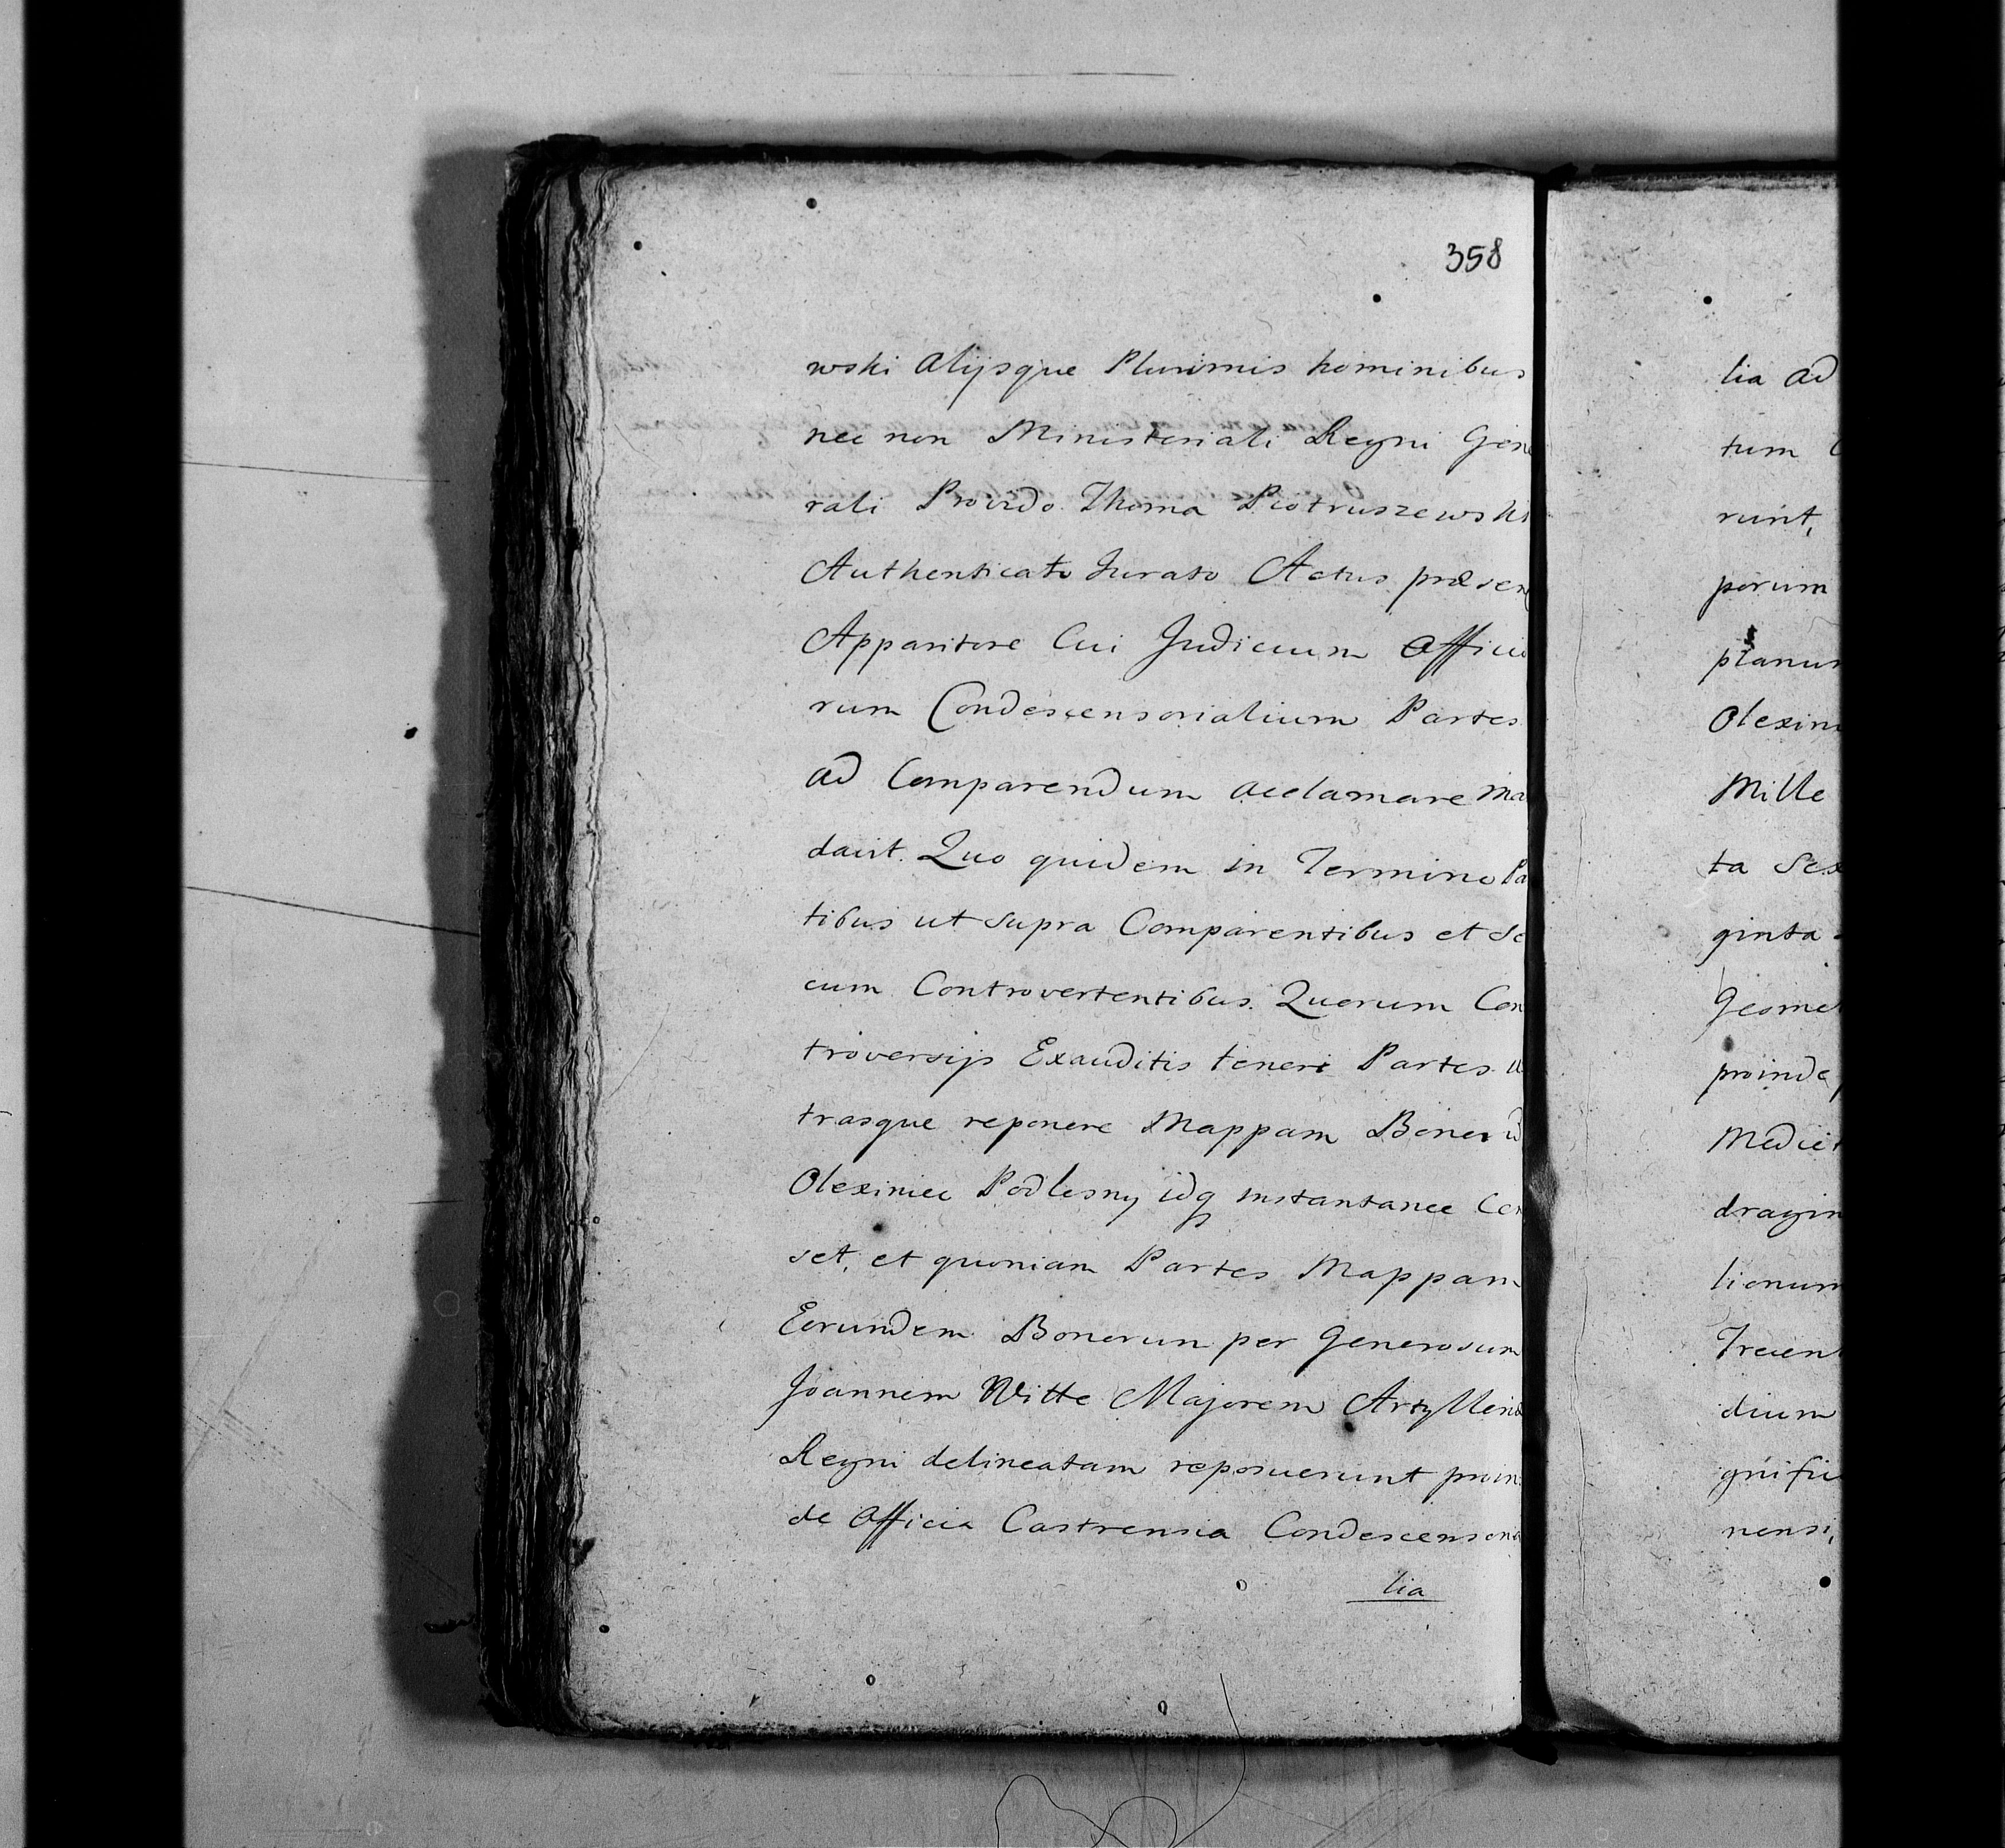 358
wski Alijsque Plurimis hominibus
nec non Ministeriali Regni Gene
rali Provido Thoma Piotruszewski
Authenticato Jurato Actus præsen
Apparitore Cui Judicium Officio
rum Condescensorialium Partes
ad Comparendum acclamare Man
davit. Quo quidem in Termino Pa
tibus ut supra Comparentibus et Se
cum Controvertentibus. Quorum Con
troversijs Exauditis teneri Partes u
trasque reponere Mappam Bonorū
Olexiniec Podlesny idq instantanee Cen
set, et quoniam Partes Mappam
Eorundem Bonorum per Generosum
Joannem Witte Majorem Artylleriæ
Regni delineatam reposuerunt proin
de Officia Castrensia Condescensoria
lia
lia ad
tum
runt,
porum
planum
Olexini
Mille
ta Sex
ginta
Geomet
proinde
Mediet
dragin
lionum
Trecent
dium
gnifi
nensi,